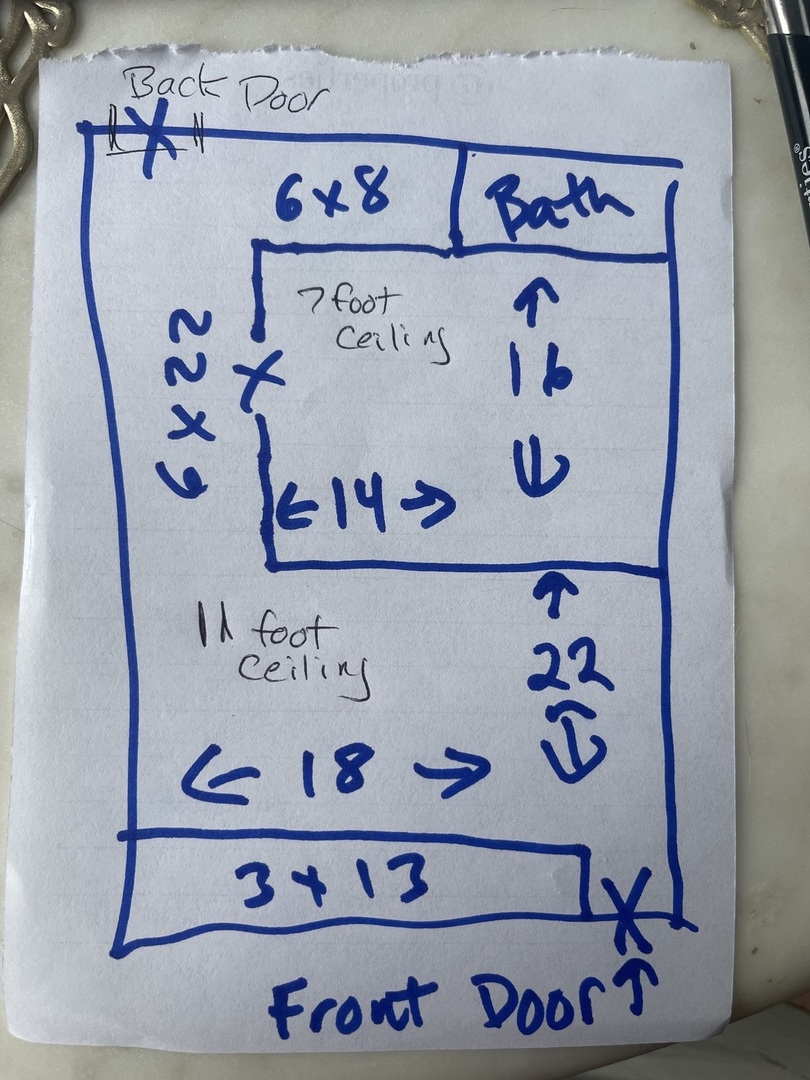 Back Door
X
6x8
Bath
7 foot
Ceiling
↑
16
↓
22 x 6
X
← 14 →
11 foot
Ceiling
↑
22
↓
← 18 →
3 x 13
X
Front Door ↑